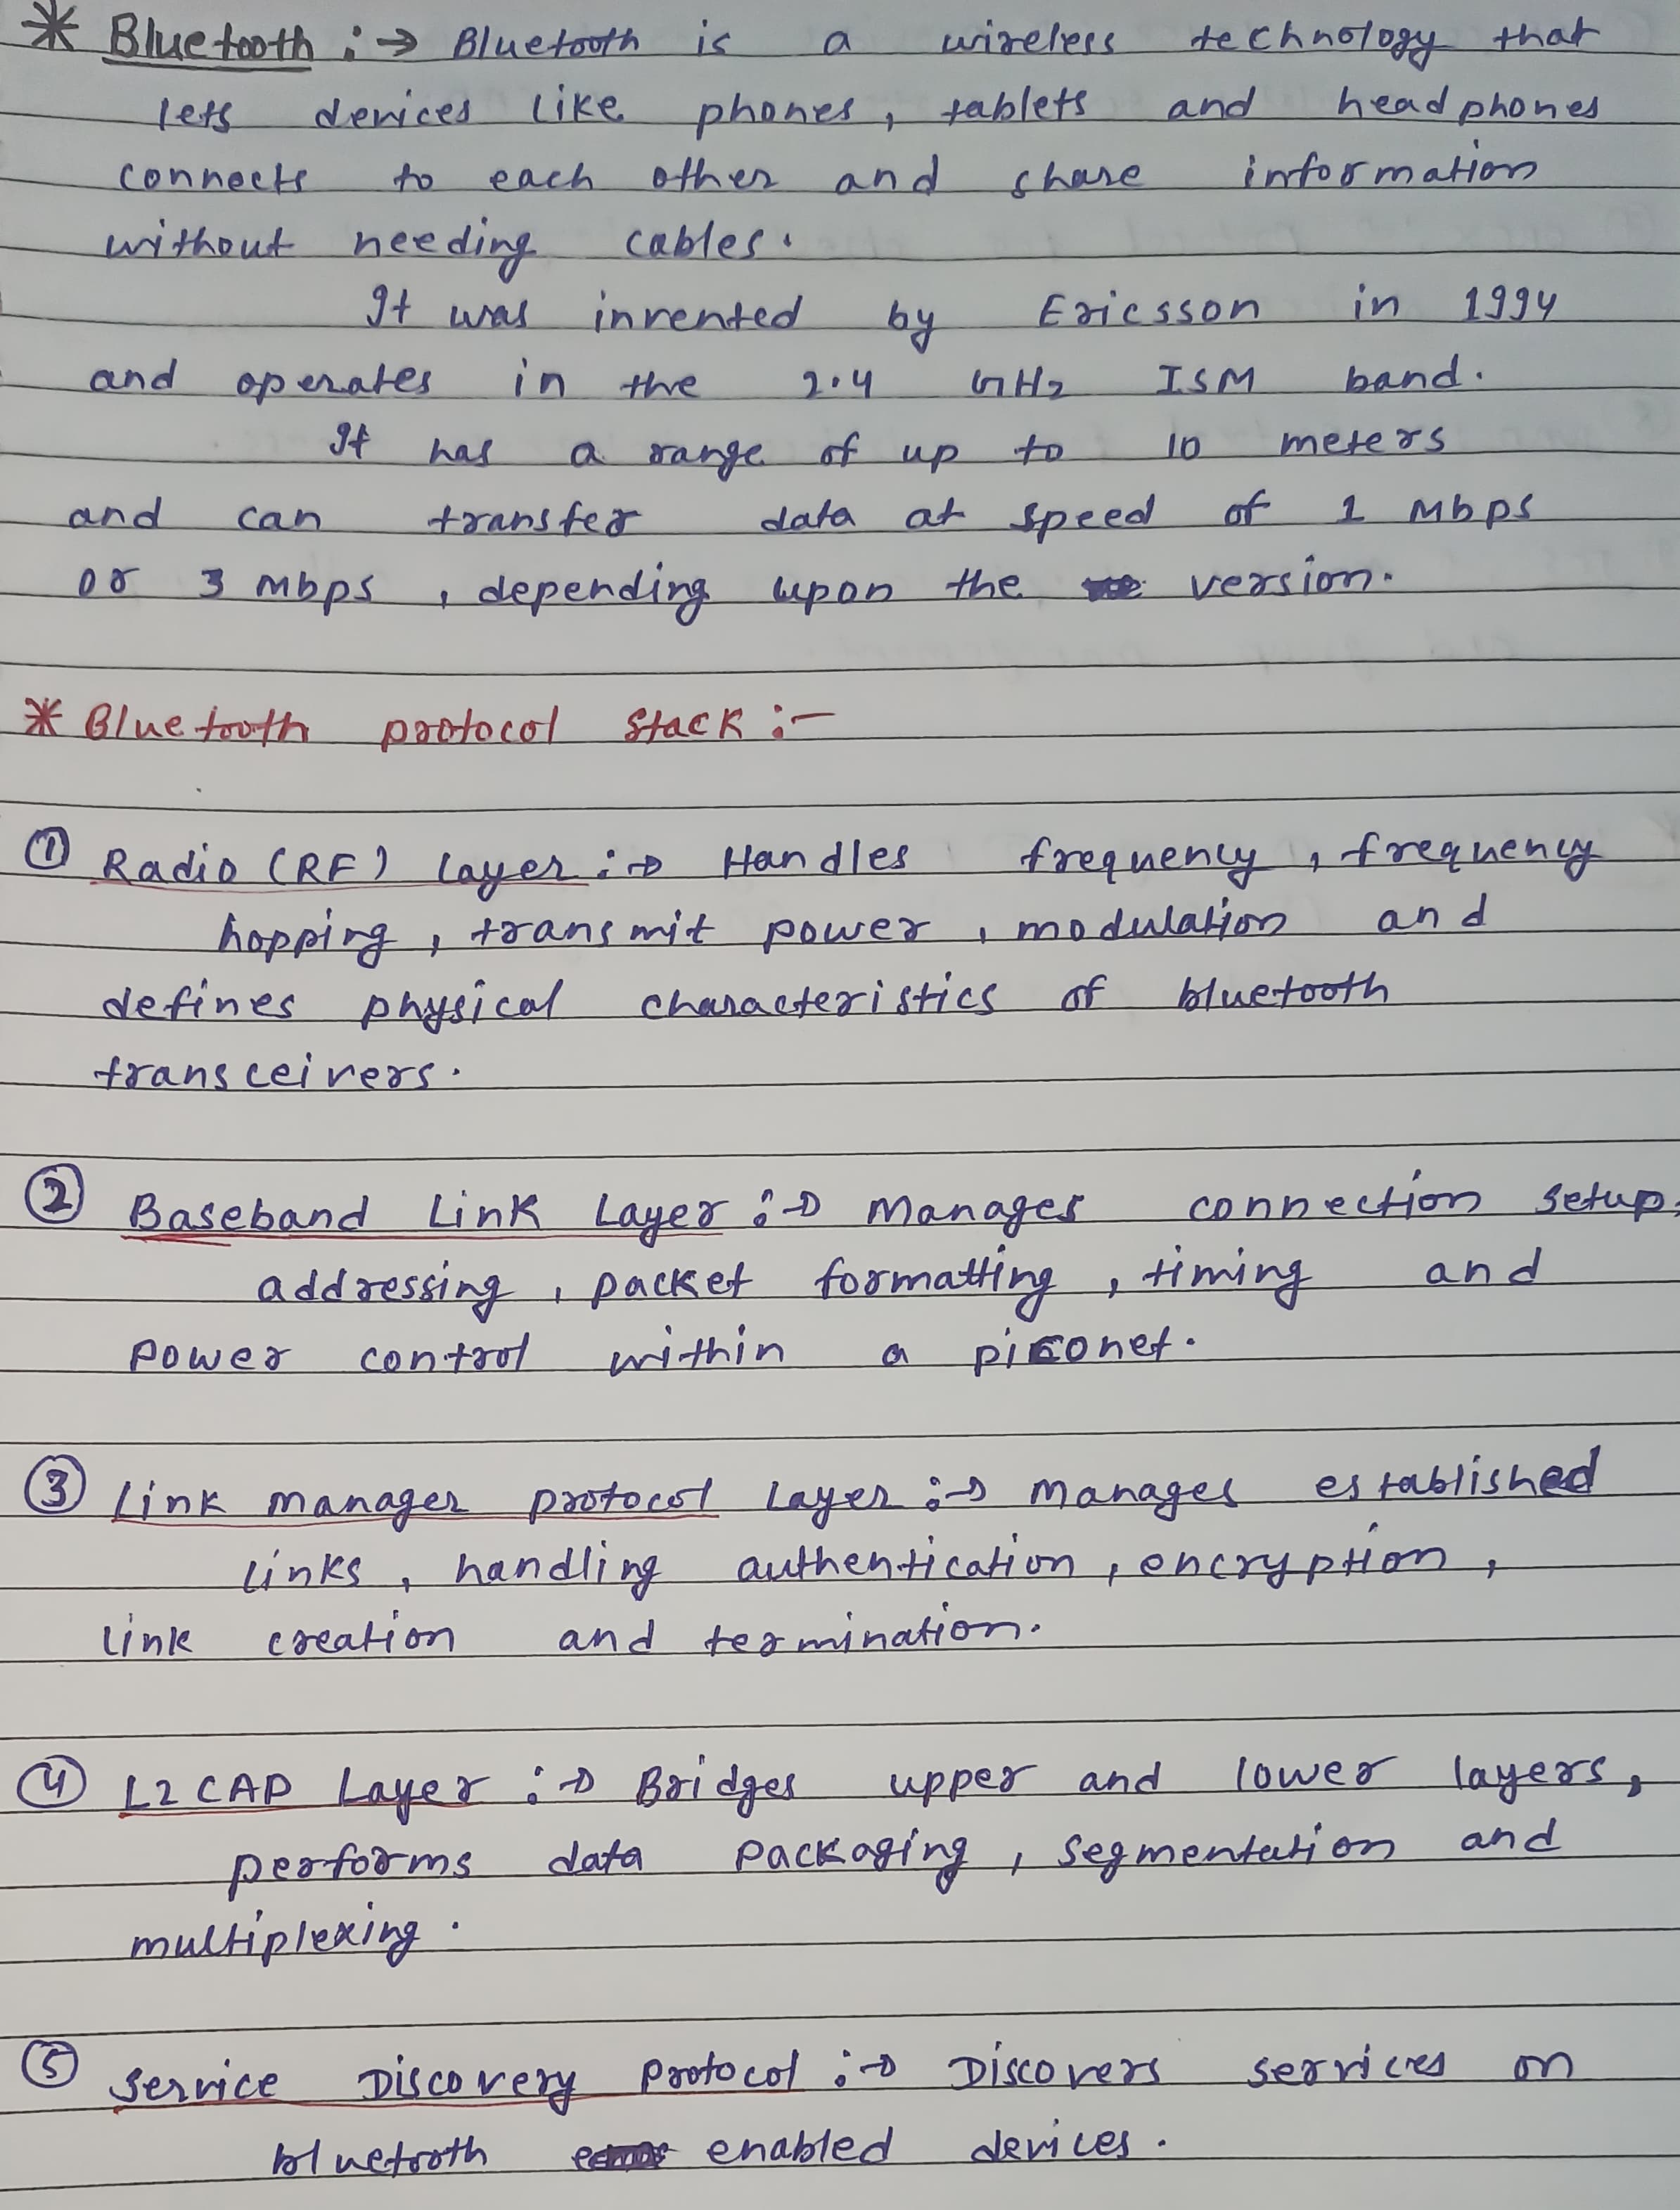 * Bluetooth :→ Bluetooth is a wireless technology that
lets devices like phones, tablets and headphones
connects to each other and share information
without needing cables.
It was invented by Ericsson in 1994
and operates in the 2.4 GHz ISM band.
It has a range of up to 10 meters
and can transfer data at speed of 1 Mbps
or 3 Mbps, depending upon the version.
* Bluetooth protocol stack :-
① Radio (RF) Layer :→ Handles frequency, frequency
hopping, transmit power, modulation and
defines physical characteristics of bluetooth
transceivers.
② Baseband Link Layer :→ Manages connection setup,
addressing, packet formatting, timing and
power control within a piconet.
③ Link manager protocol Layer :→ Manages established
links, handling authentication, encryption,
link creation and termination.
④ L2CAP Layer :→ Bridges upper and lower layers,
performs data packaging, segmentation and
multiplexing.
⑤ Service Discovery protocol :→ Discovers services on
bluetooth enabled devices.